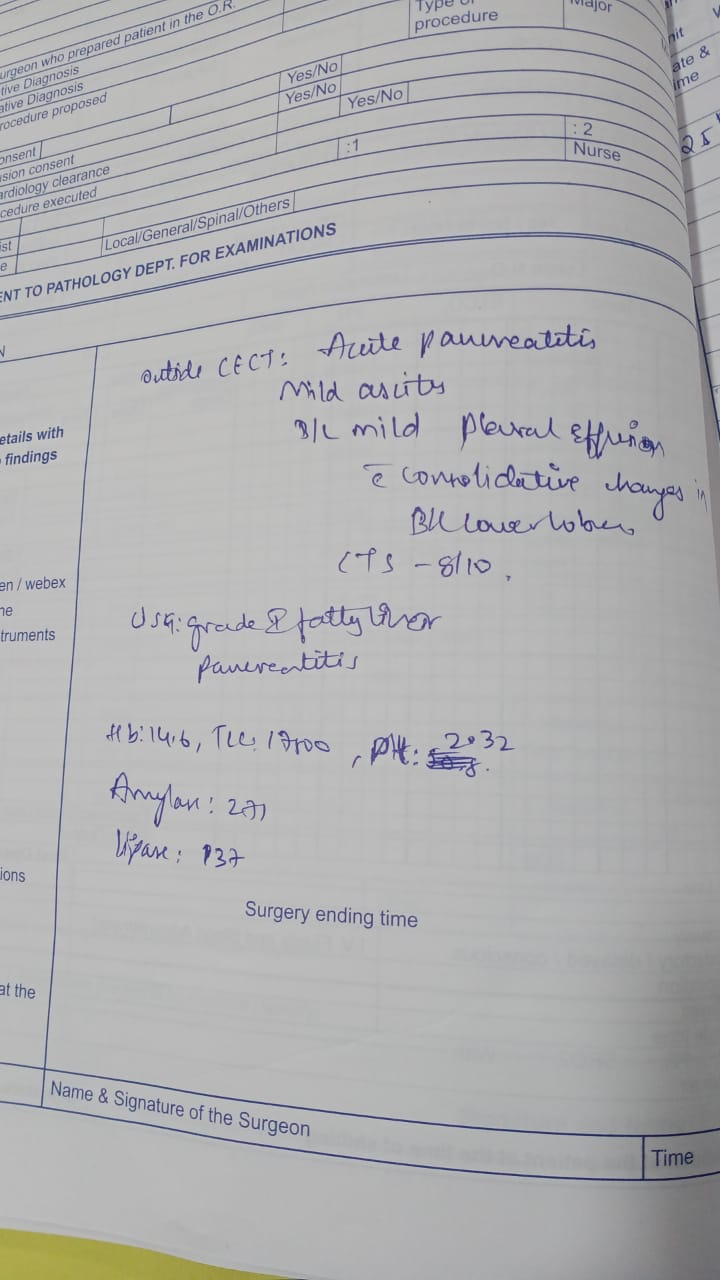 urgeon who prepared patient in the O.R.
Type of procedure
Major
tive Diagnosis
ative Diagnosis
rocedure proposed
Yes/No
Yes/No
Yes/No
onsent
sion consent
ardiology clearance
cedure executed
:1
: 2
Nurse
ist
e
Local/General/Spinal/Others
ENT TO PATHOLOGY DEPT. FOR EXAMINATIONS
nit
ate &
ime
25
outside CECT: Acute pancreatitis
Mild ascitis
B/L mild Pleural Effusion
c̄ Consolidative changes in
B/L lower lobes
CTS - 8/10.
USG: grade I fatty liver
pancreatitis
Hb: 14.6, TLC: 17800, Plt: 2.32
Amylase: 271
Lipase: 137
etails with
findings
en / webex
ne
truments
ions
at the
Surgery ending time
Name & Signature of the Surgeon
Time